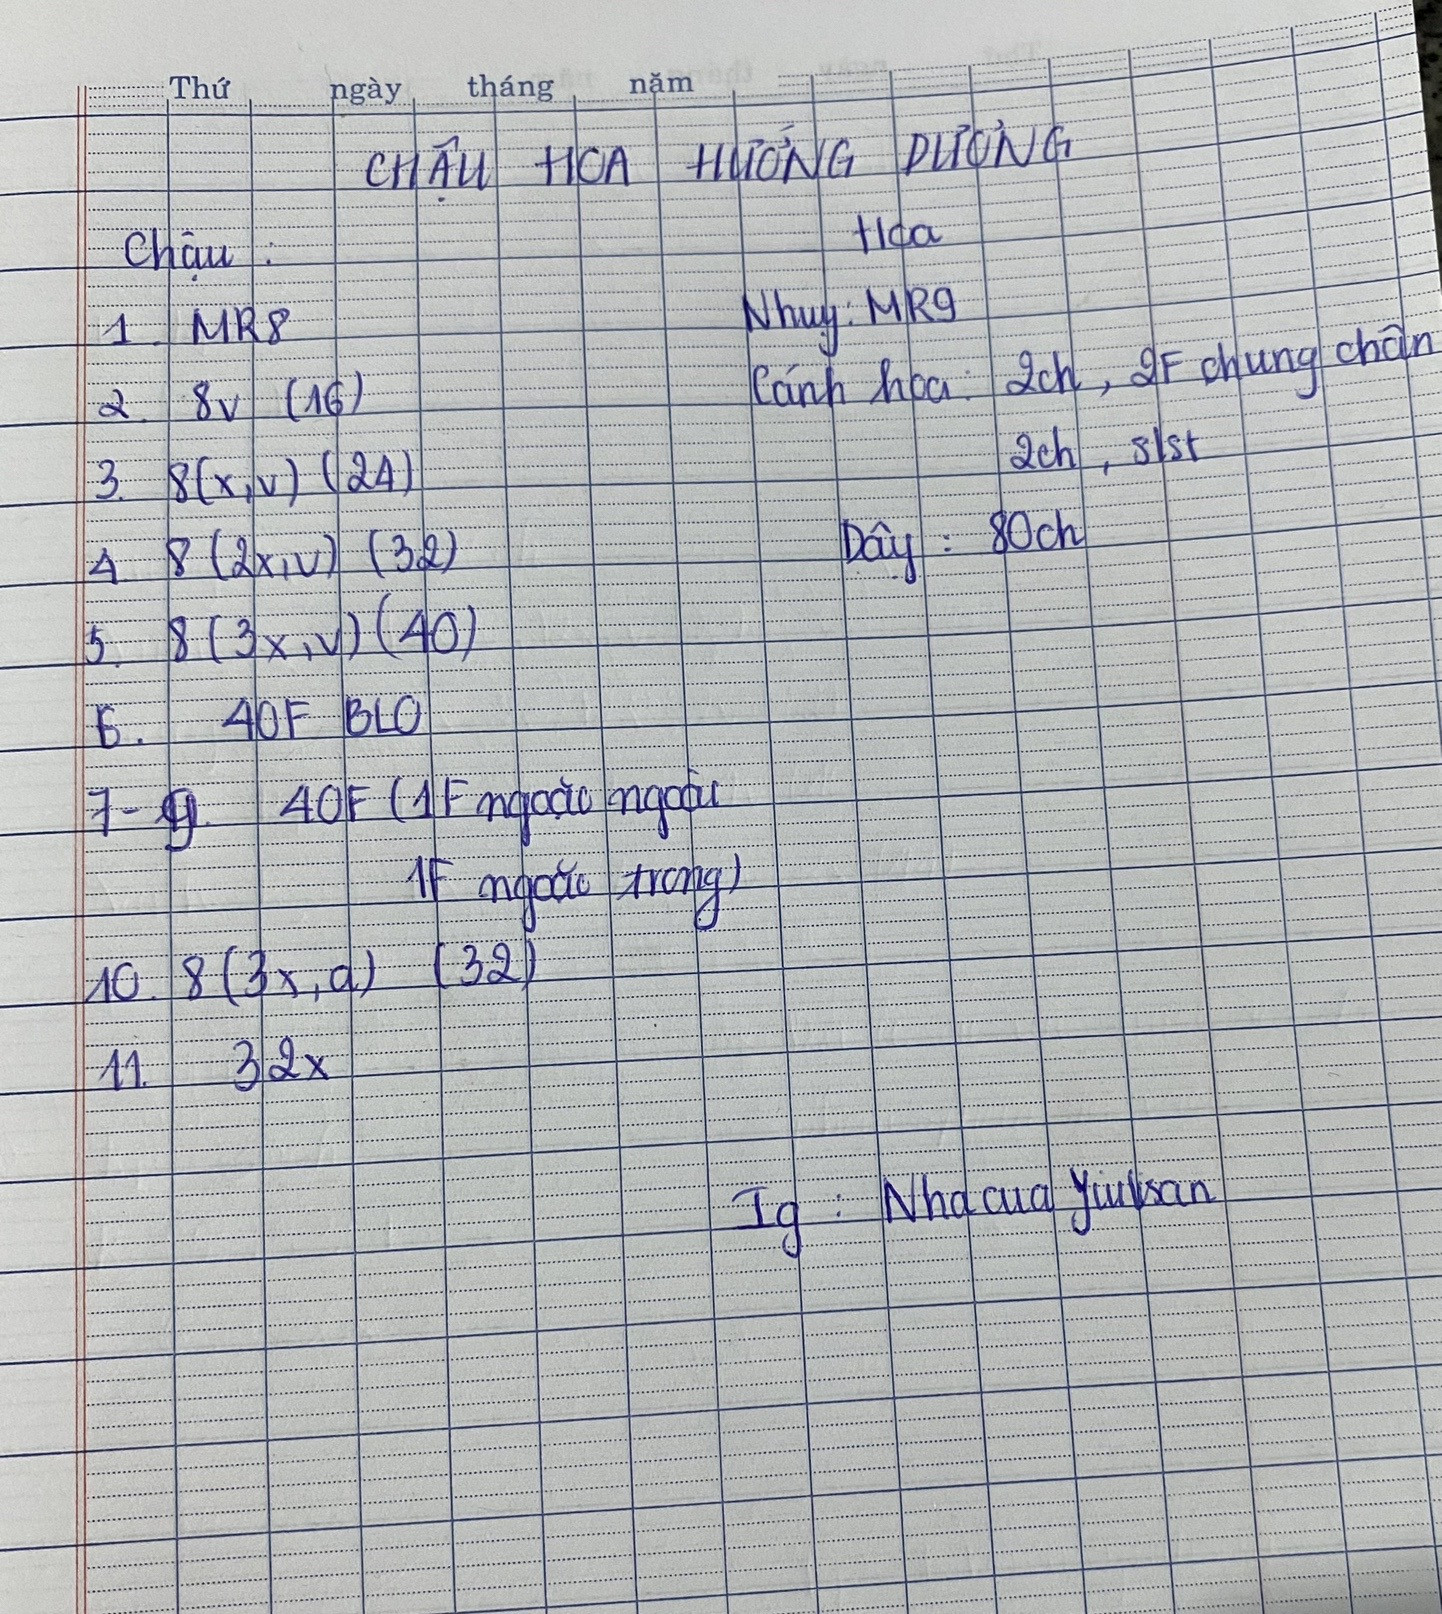 Thứ ngày tháng năm
CHẬU HOA HƯỚNG DƯƠNG
Chậu :
1. MR8
2. 8v (16)
3. 8(x,v) (24)
4 8(2x,v) (32)
5. 8(3x,v) (40)
6. 40F BLO
7-9. 40F (1F ngoặc ngoài
1F ngoặc trong)
10. 8(3x,a) (32)
11. 32x
Hoa
Nhuy: MR9
Cánh hoa: 2ch, 2F chung chân
2ch, slst
Dây: 80ch
Ig: Nhacua